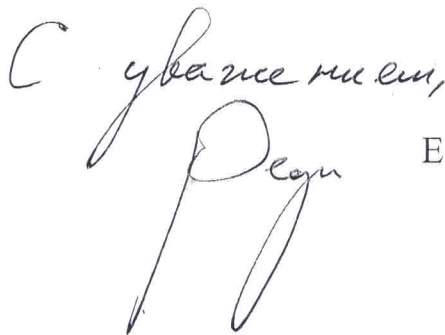 С уважением,
Е